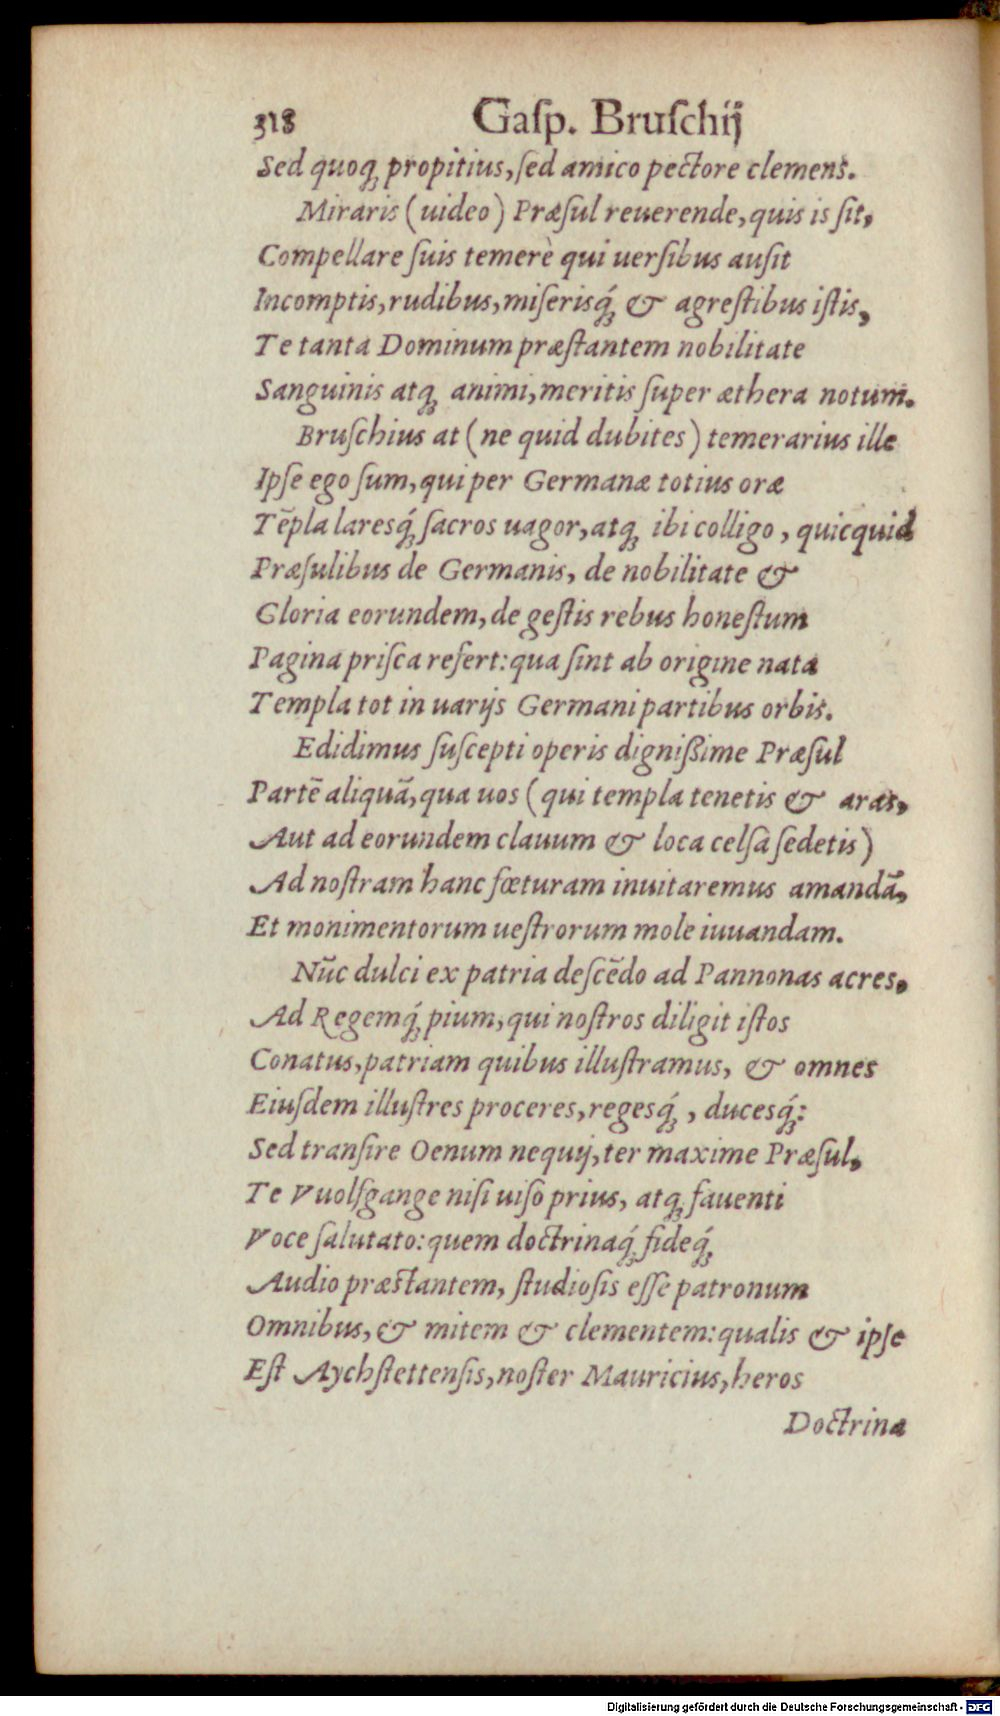 318 Gaſp. Bruſchij
Sed quoqꝫ propitius, ſed amico pectore clemens.
Miraris (uideo) Præſul reuerende, quis is ſit,
Compellare ſuis temerè qui uerſibus auſit
Incomptis, rudibus, miſerisq́ꝫ & agreſtibus iſtis,
Te tanta Dominum præſtantem nobilitate
Sanguinis atqꝫ animi, meritis ſuper æthera notum.
Bruſchius at (ne quid dubites) temerarius ille
Ipſe ego ſum, qui per Germanæ totius oræ
Tẽpla laresq́ꝫ ſacros uagor, atqꝫ ibi colligo, quicquid
Præſulibus de Germanis, de nobilitate &
Gloria eorundem, de geſtis rebus honeſtum
Pagina priſca refert: qua ſint ab origine nata
Templa tot in uarijs Germani partibus orbis.
Edidimus ſuſcepti operis digniſsime Præſul
Partẽ aliquã, qua uos (qui templa tenetis & aras,
Aut ad eorundem clauum & loca celſa ſedetis)
Ad noſtram hanc fœturam inuitaremus amandã,
Et monimentorum ueſtrorum mole iuuandam.
Nũc dulci ex patria deſcẽdo ad Pannonas acres,
Ad Regemq́ꝫ pium, qui noſtros diligit iſtos
Conatus, patriam quibus illuſtramus, & omnes
Eiuſdem illuſtres proceres, regesq́ꝫ, ducesq́ꝫ:
Sed tranſire Oenum nequij, ter maxime Præſul,
Te Vuolfgange niſi uiſo prius, atqꝫ fauenti
Voce ſalutato: quem doctrinaq́ꝫ fideq́ꝫ
Audio præſtantem, ſtudioſis eſſe patronum
Omnibus, & mitem & clementem: qualis & ipſe
Eſt Aychſtettenſis, noſter Mauricius, heros
Doctrina
Digitalisierung gefördert durch die Deutsche Forschungsgemeinschaft - DFG